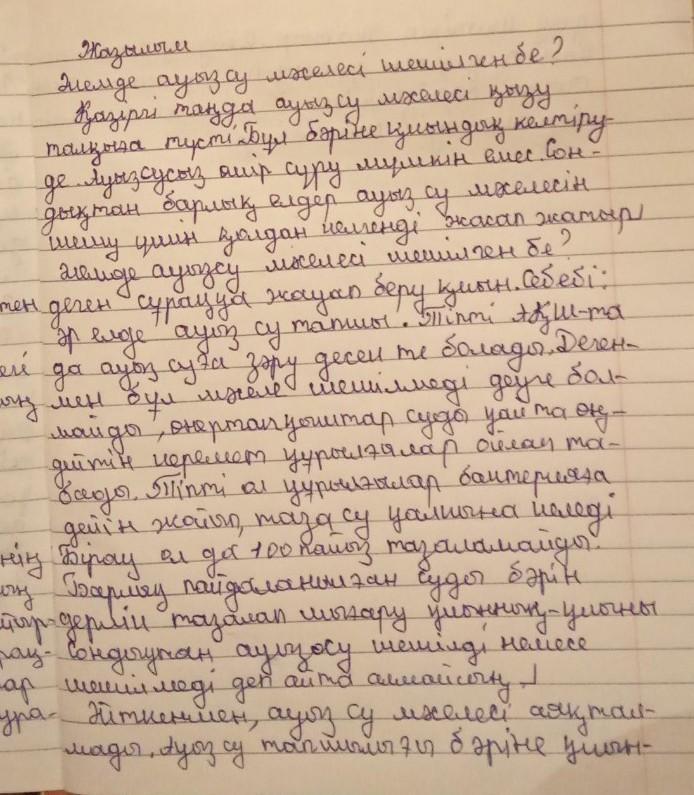 Жазылым
Әлемде ауыз су мәселесі шешілген бе?
Қазіргі таңда ауыз су мәселесі қызу
талқыға түсті. Бұл бәріне қиындық келтіру-
де. Ауызсусыз өмір сүру мүмкін емес. Сон-
дықтан барлық елдер ауыз су мәселесін
шешу үшін қолдан келгенді жасап жатыр
Әлемде ауызсу мәселесі шешілген бе?
тен деген сұраққа жауап беру қиын. Себебі:
әр елде ауыз су тапшы. Тіпті АҚШ-та
да ауыз суға зәру десең те болады. Деген-
мен бұл мәселе шешілмеді деуге бол-
майды, өнертапқыштар суды қайта өң-
дейтін керемет құрылғалар ойлап та-
бады. Тіпті ол құрылғылар бактерияға
дейін жойып, таза су қалпына келеді
нің Бірақ ол да 100 пайыз тазаламайды.
ың Барлық пайдаланылған суды бәрін
дерлік тазалап шығару қиынның-қиыны
рақ- Сондықтан ауызсу шешілді немесе
ар шешілмеді деп айта алмайсың.
ура- Әйткенмен, ауыз су мәселесі аяқтал-
мады. Ауыз су тапшылығы бәріне қиын-